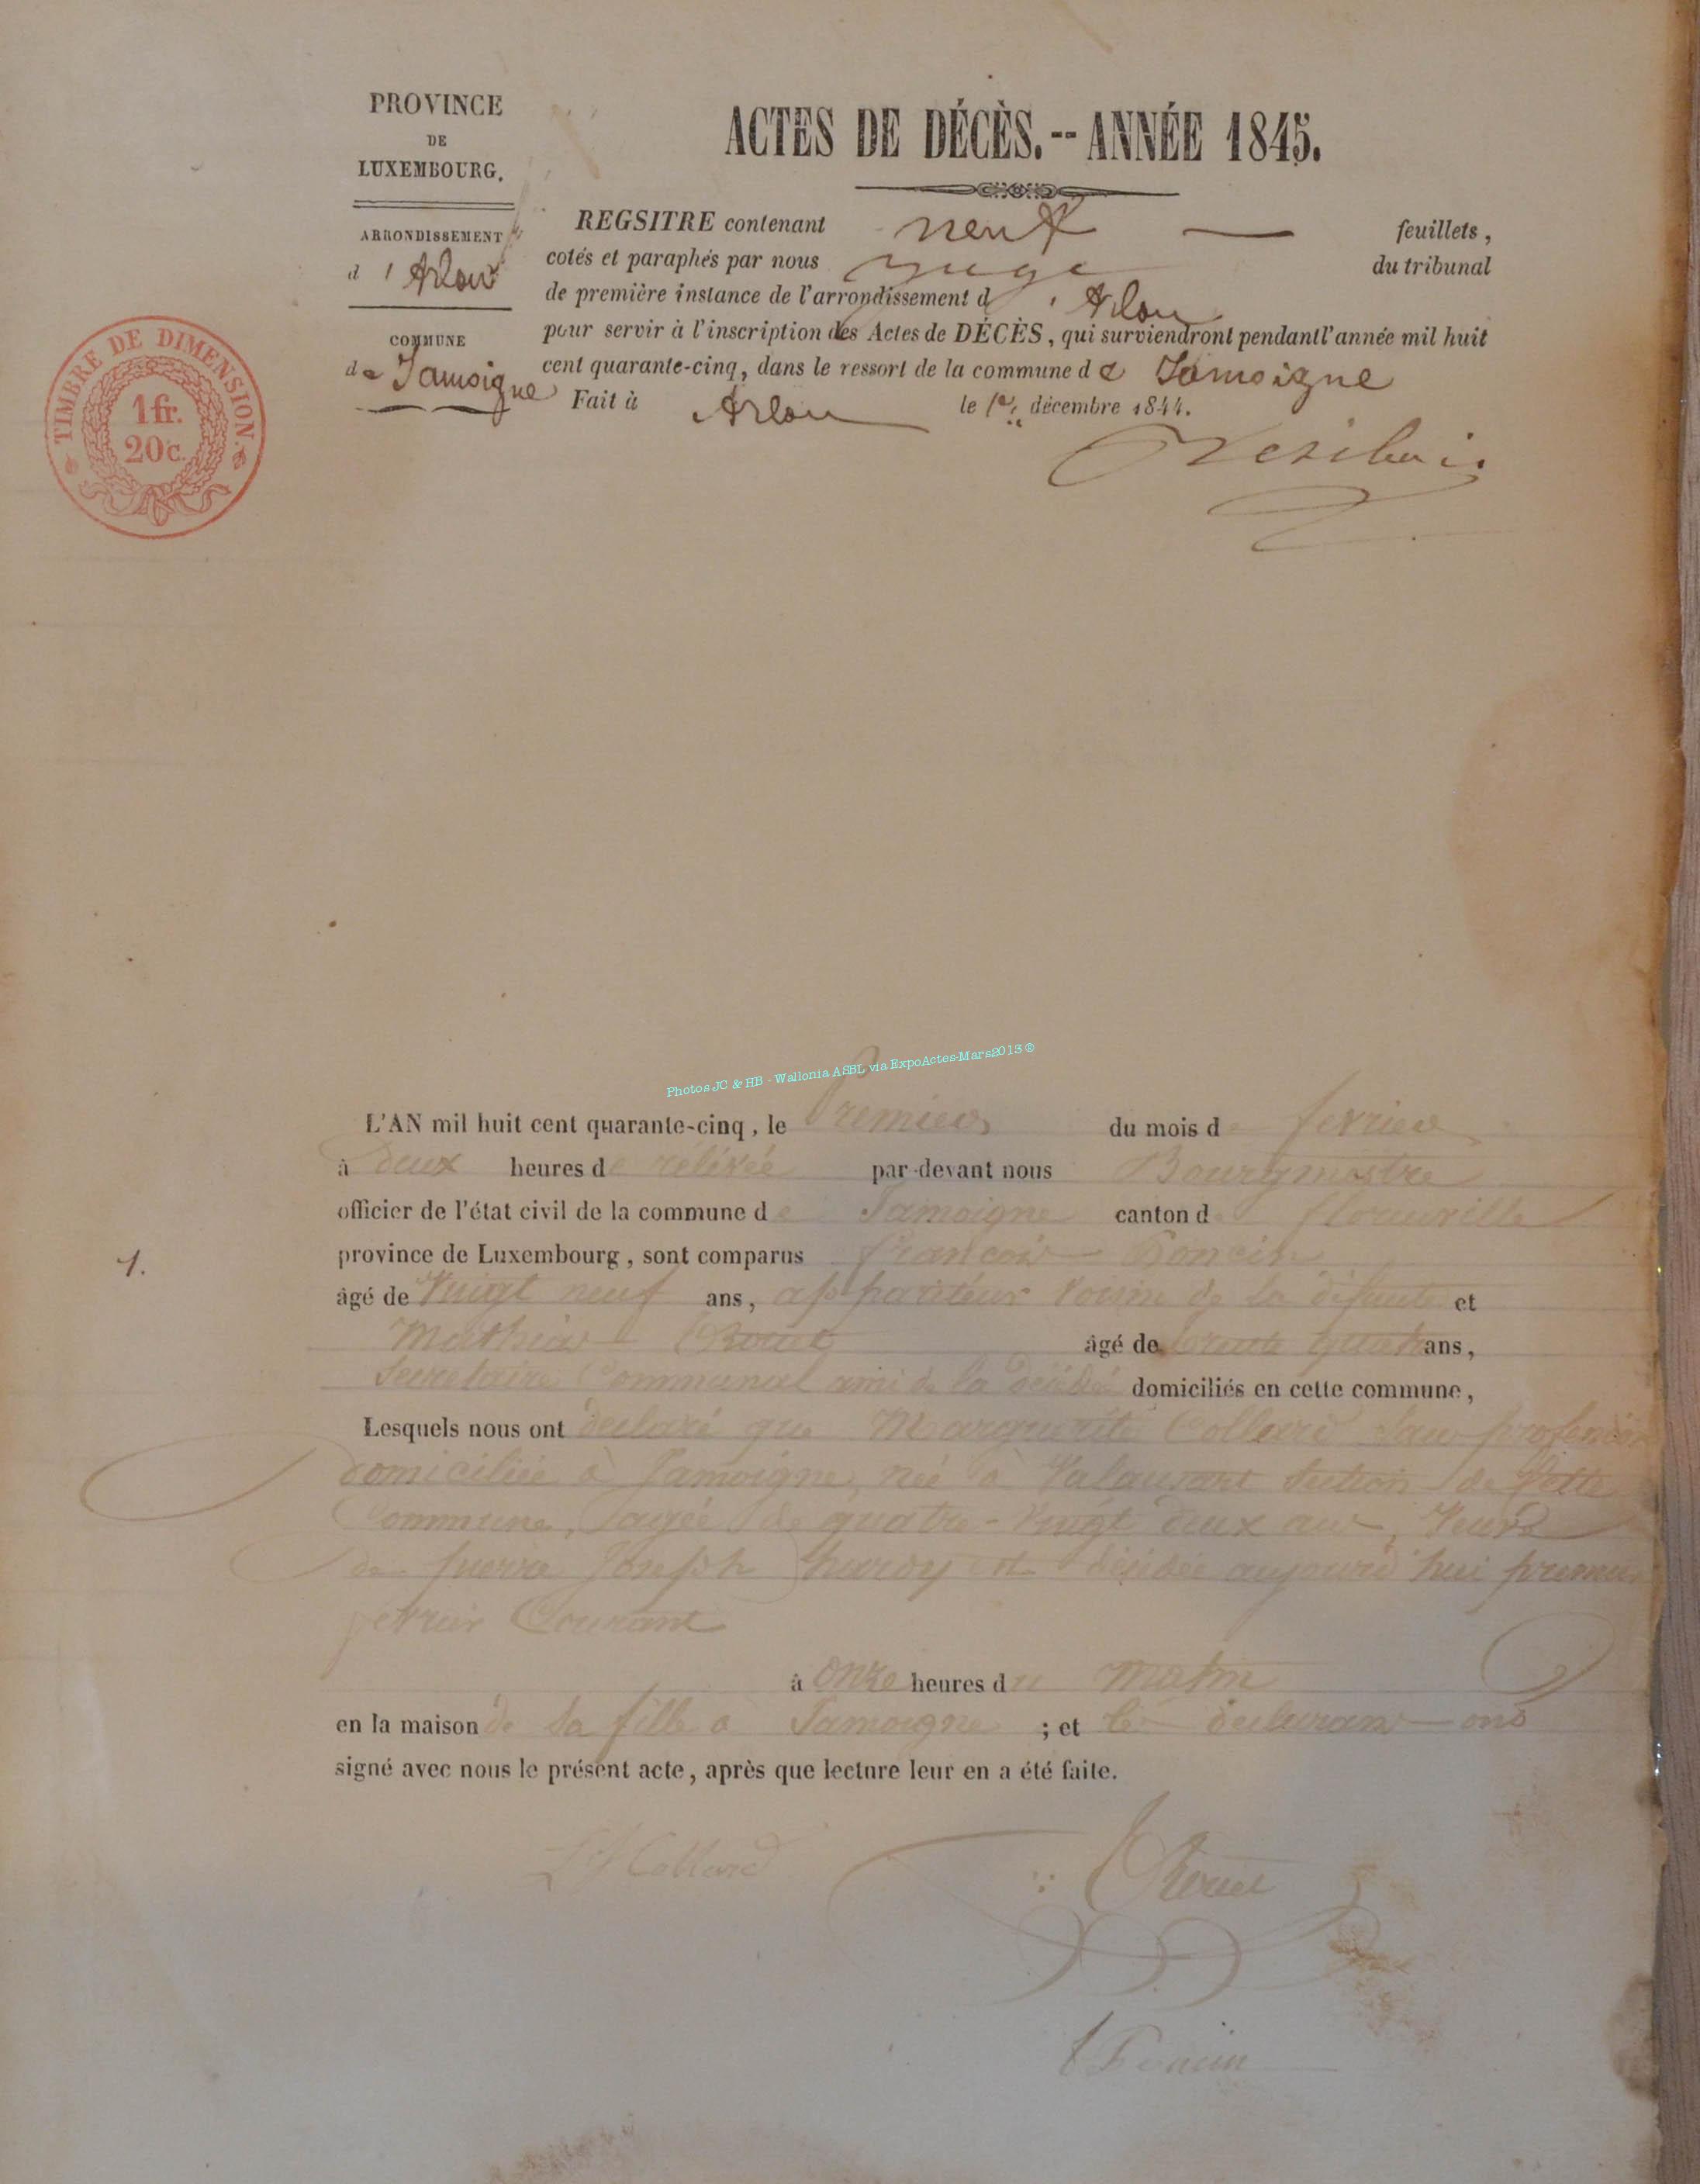 PROVINCE
DE
LUXEMBOURG.
ARRONDISSEMENT
d'Arlon
COMMUNE
de Jamoigne
TIMBRE DE DIMENSION.
1 fr.
20 c.
ACTES DE DÉCÈS.-- ANNÉE 1845.
REGSITRE contenant neuf feuillets,
cotés et paraphés par nous juge du tribunal
de première instance de l'arrondissement d'Arlon
pour servir à l'inscription des Actes de DÉCÈS, qui surviendront pendantl'année mil huit
cent quarante-cinq, dans le ressort de la commune de Jamoigne
Fait à Arlon le 1er décembre 1844.
Photos JC & HB - Wallonia ASBL via ExpoActes-Mars2013 ®
1.
L'AN mil huit cent quarante-cinq, le Premier du mois de fevrier
à deux heures de relevée par-devant nous Bourgmestre
officier de l'état civil de la commune de Jamoigne canton de florenville
province de Luxembourg, sont comparus francois Poncin
âgé de Vingt neuf ans, appariteur voisin de la défunte et
Mathias Rouet âgé de trente quatre ans,
Secretaire Communal ami de la décédée domiciliés en cette commune,
Lesquels nous ont declaré que Marguerite Collard sans profession
domiciliée à Jamoigne, née à Valansart Section de Cette
Commune, agée de quatre-Vingt deux ans, Veuve
de pierre Joseph hardy est décédée aujourd'hui premier
fevrier Courant
à onze heures du matin
en la maison de Sa fille à Jamoigne ; et les declarans ont
signé avec nous le présent acte, après que lecture leur en a été faite.
Collard
Rouet
Poncin